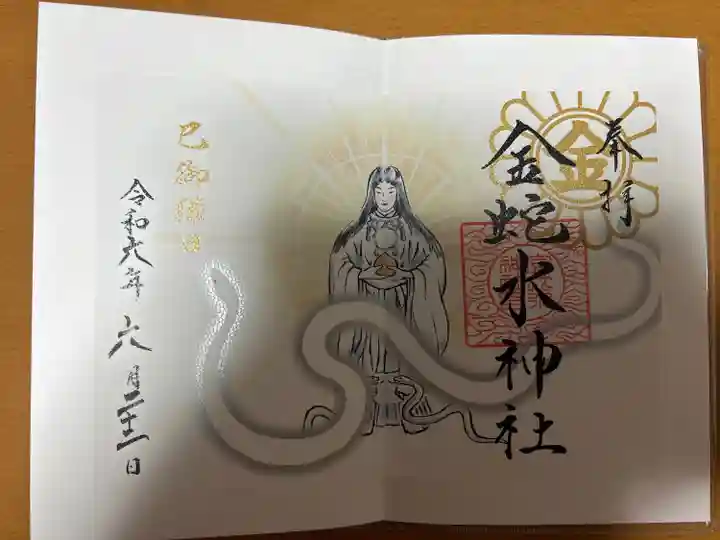 奉拝
金
金蛇水神社
巳御縁日
令和六年六月二十二日